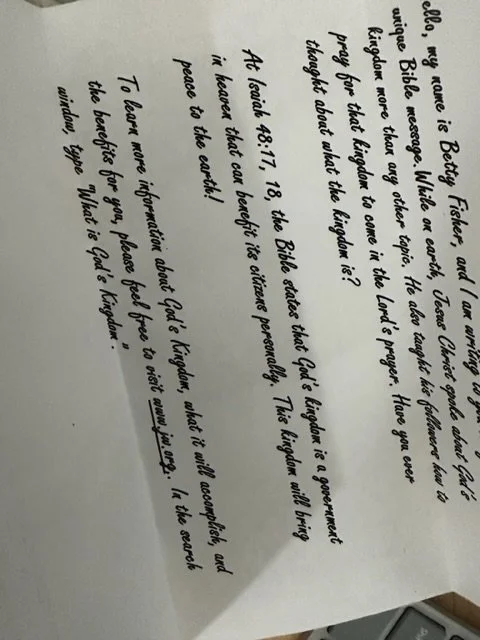 ello, my name is Betty Fisher, and I am writing to you
unique Bible message. While on earth, Jesus Christ spoke about God's
kingdom more than any other topic. He also taught his followers how to
pray for that kingdom to come in the Lord's prayer. Have you ever
thought about what the kingdom is?
At Isaiah 48:17, 18, the Bible states that God's kingdom is a government
in heaven that can benefit its citizens personally. This kingdom will bring
peace to the earth!
To learn more information about God's Kingdom, what it will accomplish, and
the benefits for you, please feel free to visit www.jw.org. In the search
window, type "What is God's Kingdom."